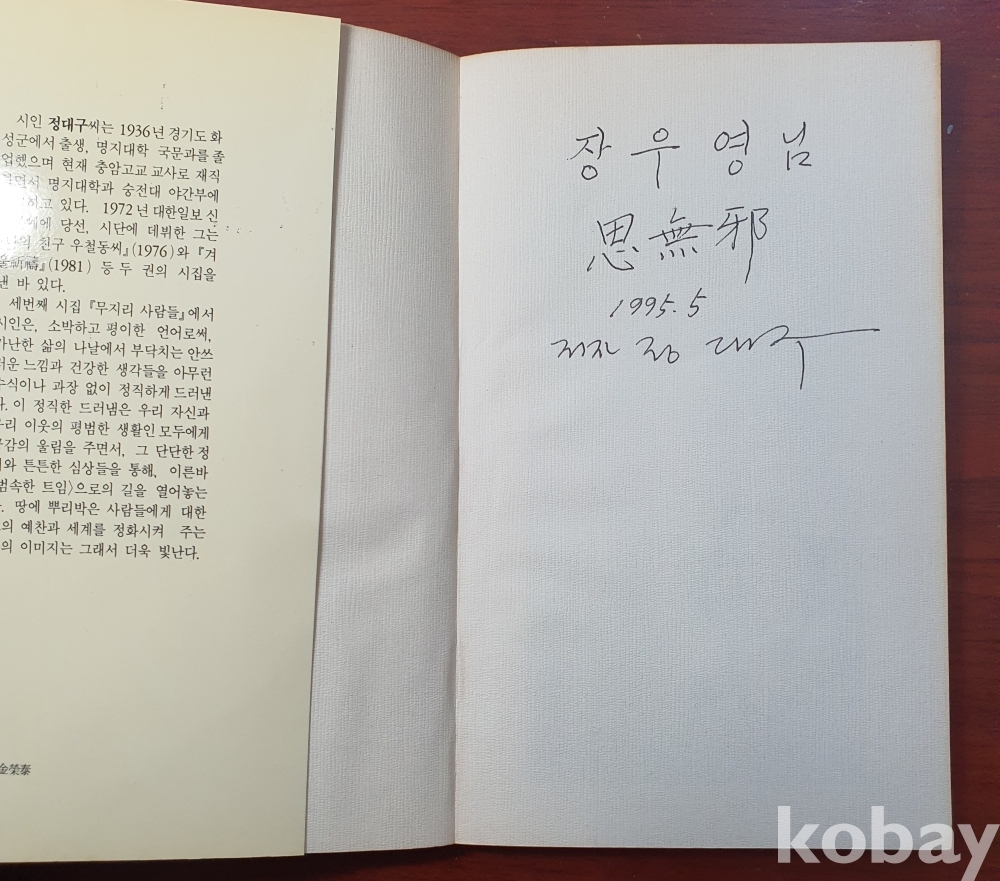 시인 정대구씨는 1936년 경기도 화
성군에서 출생, 명지대학 국문과를 졸
업했으며 현재 충암고교 교사로 재직
명지대학과 숭전대 야간부에
하고 있다. 1972년 대한일보 신
당선, 시단에 데뷔한 그는
친구 우철동씨』(1976)와 『겨
울祈禱』(1981) 등 두 권의 시집을
낸 바 있다.
세번째 시집 『무지리 사람들』에서
시인은, 소박하고 평이한 언어로써,
가난한 삶의 나날에서 부닥치는 안쓰
러운 느낌과 건강한 생각들을 아무런
수식이나 과장 없이 정직하게 드러낸
다. 이 정직한 드러냄은 우리 자신과
우리 이웃의 평범한 생활인 모두에게
공감의 울림을 주면서, 그 단단한 정
와 튼튼한 심상들을 통해, 이른바
범속한 트임〉으로의 길을 열어놓는
다. 땅에 뿌리박은 사람들에게 대한
의 예찬과 세계를 정화시켜 주는
의 이미지는 그래서 더욱 빛난다.
金榮泰
장우영님
思無邪
1995. 5
저자 정대구
kobay